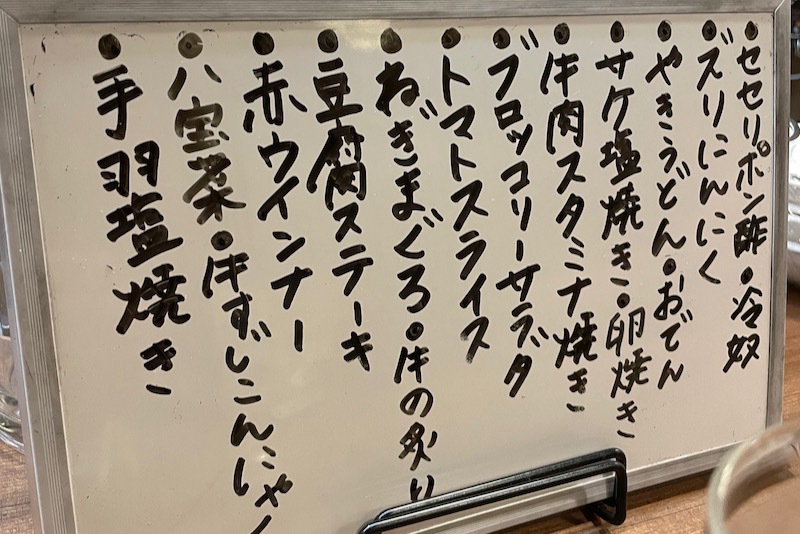 ●セセリポン酢●冷奴
●ズリにんにく
●やきうどん●おでん
●サケ塩焼き●卵焼き
●牛肉スタミナ焼き
●ブロッコリーサラダ
●トマトスライス
●ねぎまぐろ●牛の炙り
●豆腐ステーキ
●赤ウインナー
●八宝菜●牛すじこんにゃく
●手羽塩焼き